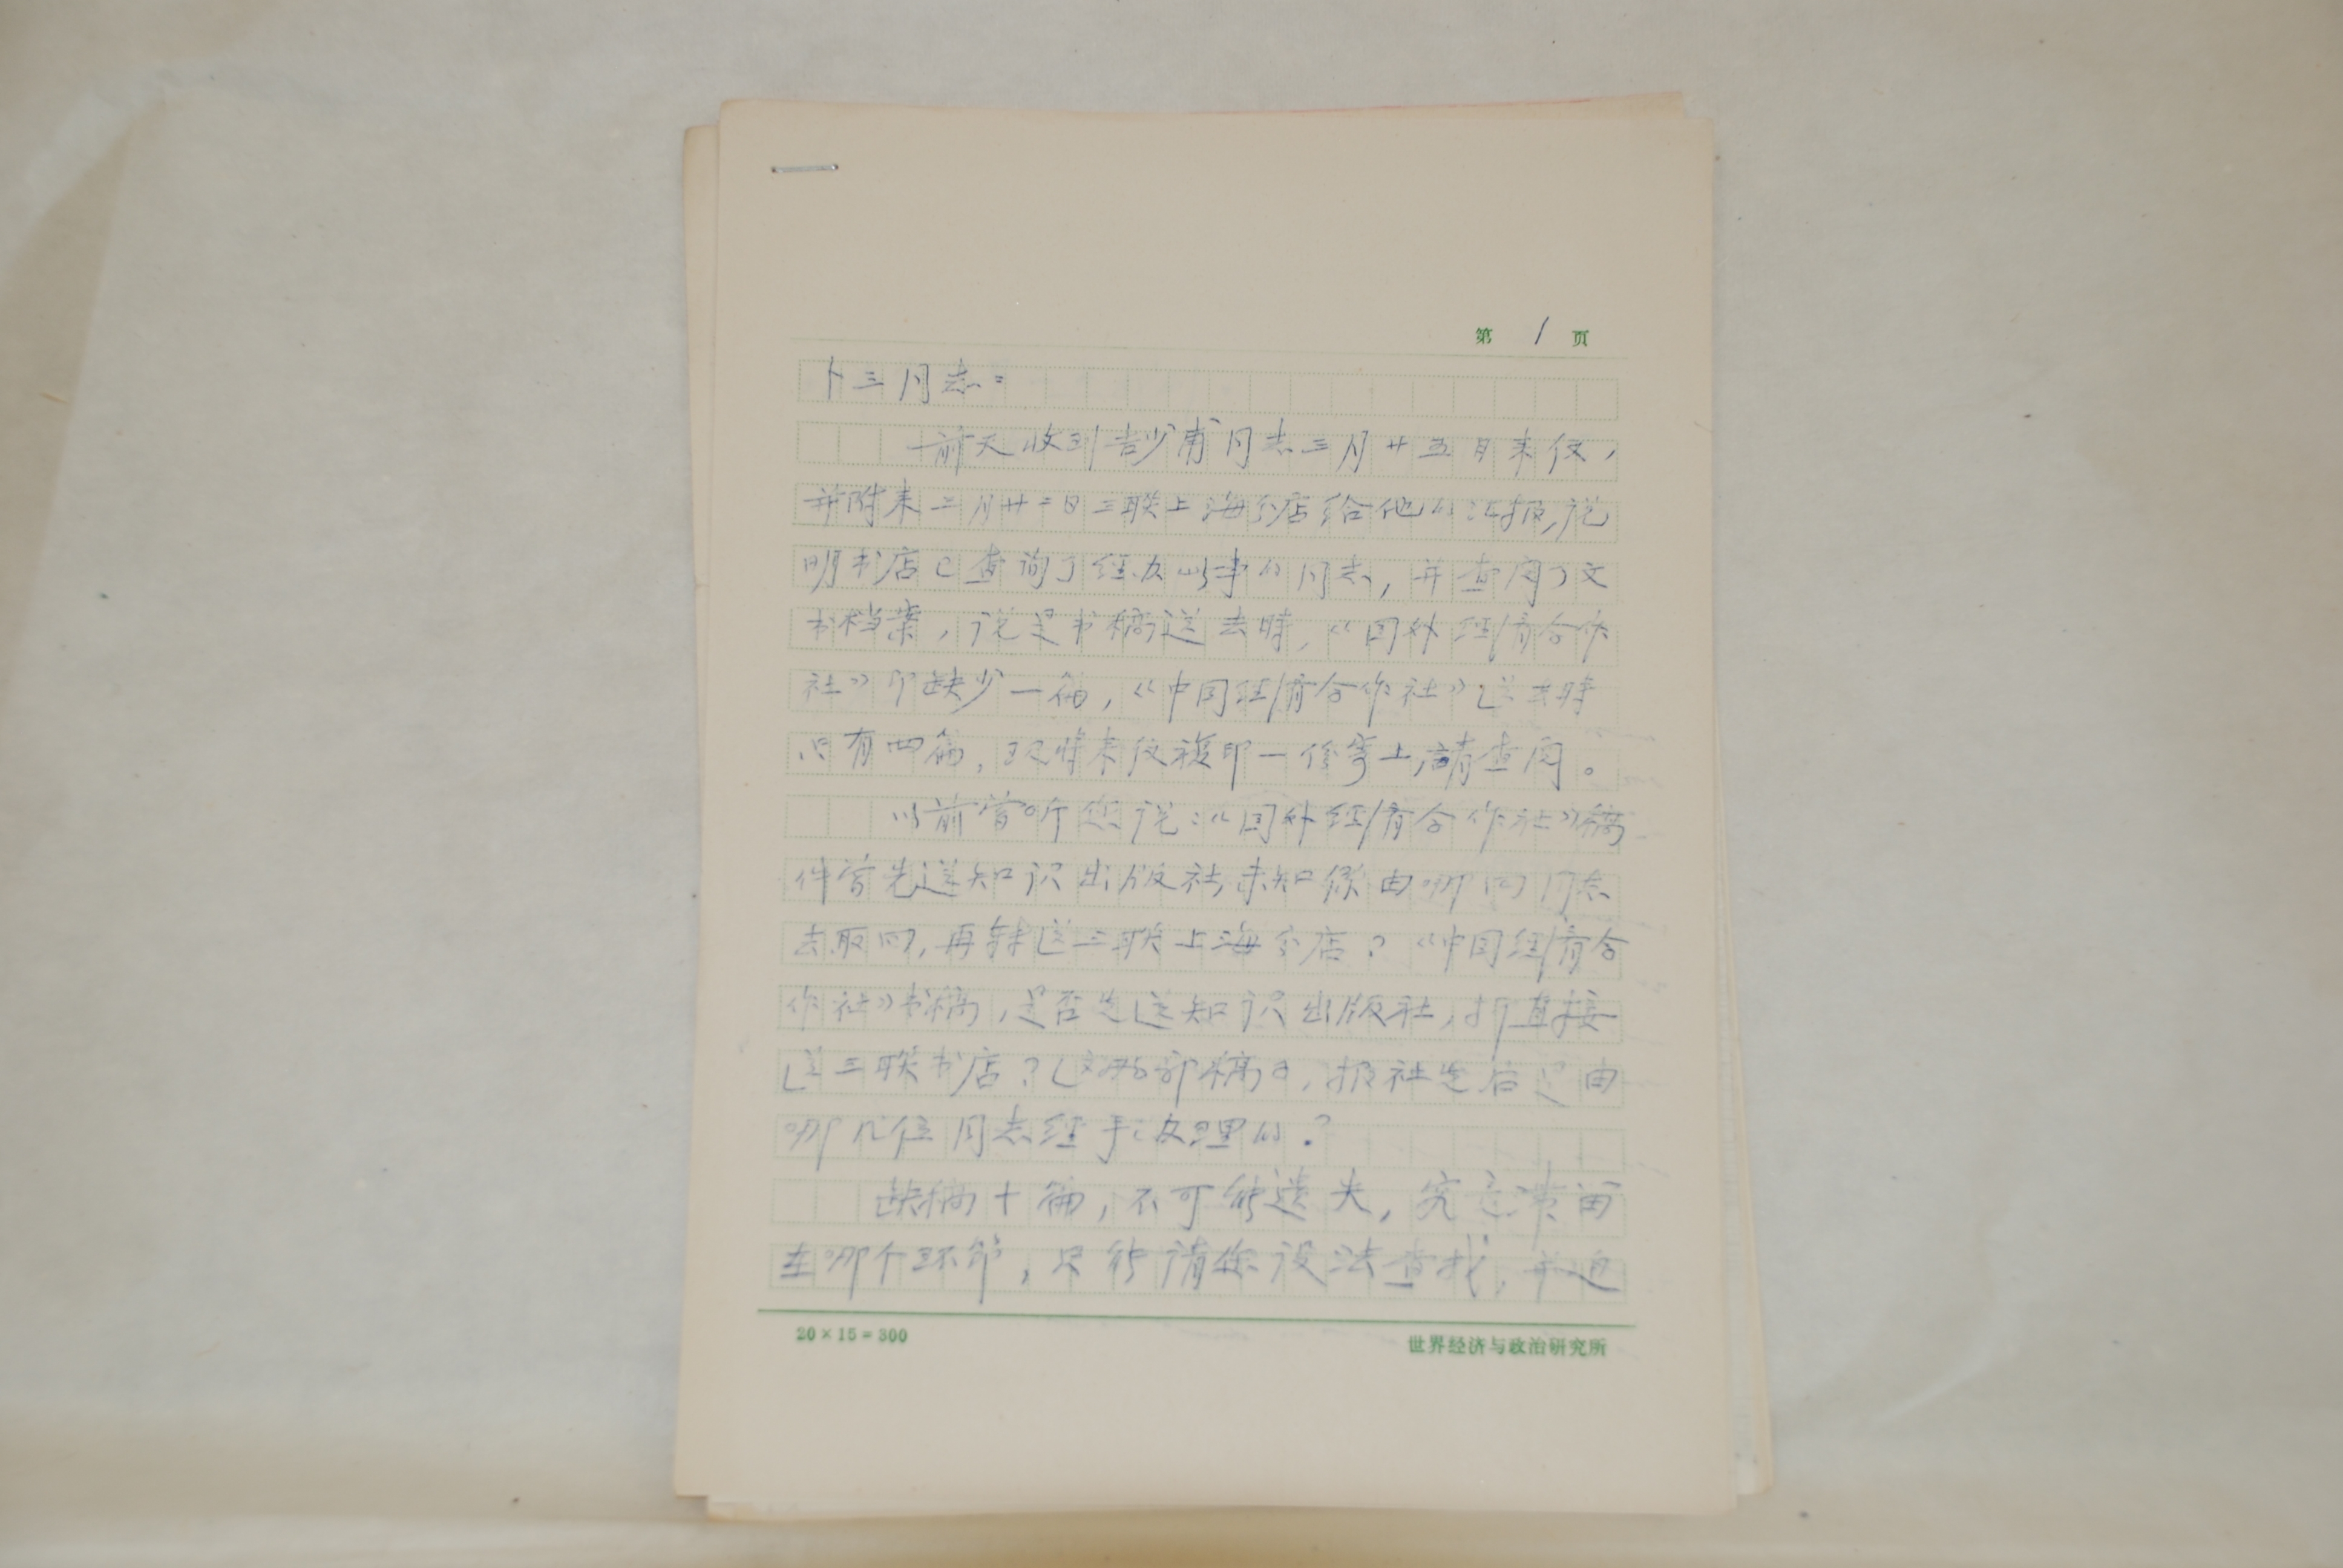 第 1 页
卜三同志:
前天收到吉少甫同志三月廿五日来信,
并附来三月廿二日三联上海分店给他的汇报,说
明书店已查询了经办此事的同志,并查阅了文
书档案,说是书稿送去时,《国外经济合作
社》即缺少一篇,《中国经济合作社》送去时
只有四篇,现将来信複印一份寄上,請查阅。
以前曾听您说:《国外经济合作社》稿
件曾先送知识出版社,未知係由哪个同志
去取回,再转送三联上海分店?《中国经济合
作社》书稿,是否先送知识出版社,抑直接
送三联书店?这两部稿子,报社先后是由
哪几位同志经手办理的?
缺稿十篇,不可能遗失,究竟滞留
在哪个环节,只能请您设法查找,并迅
20×15=300
世界经济与政治研究所